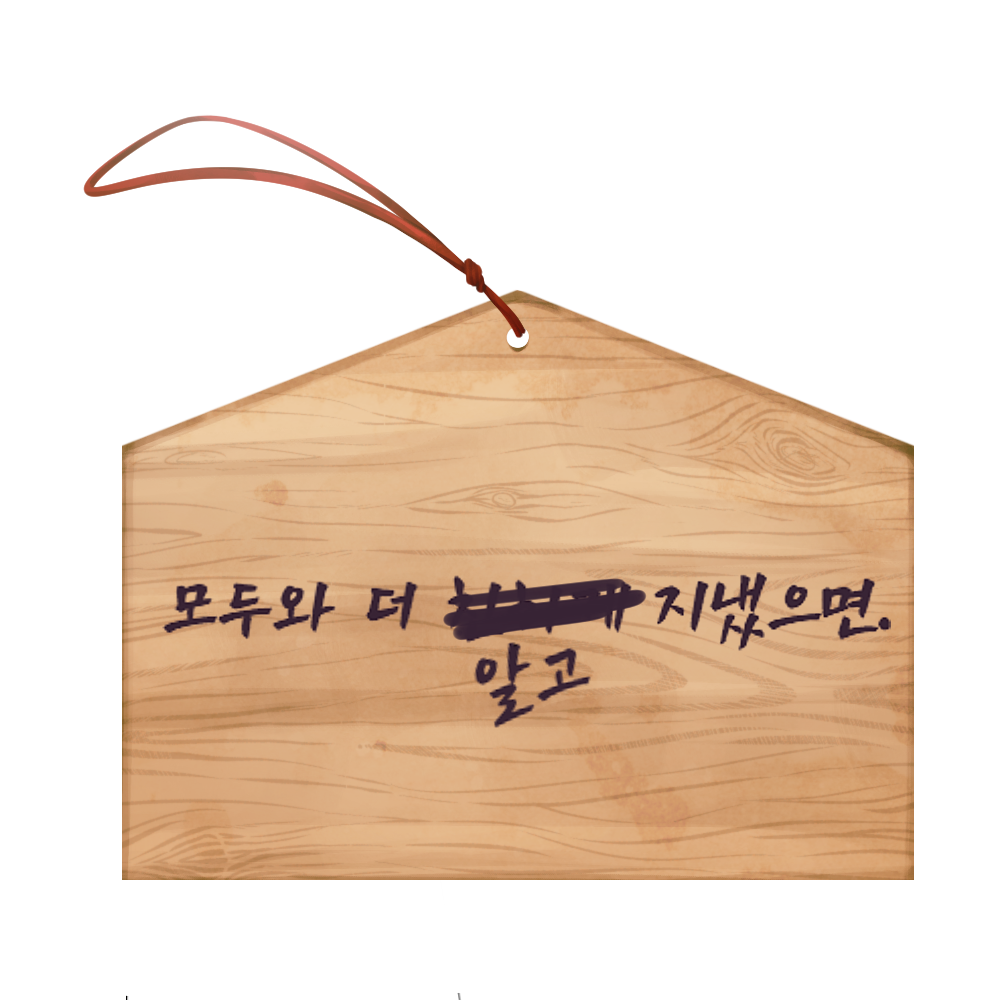 모두와 더 지냈으면.
알고